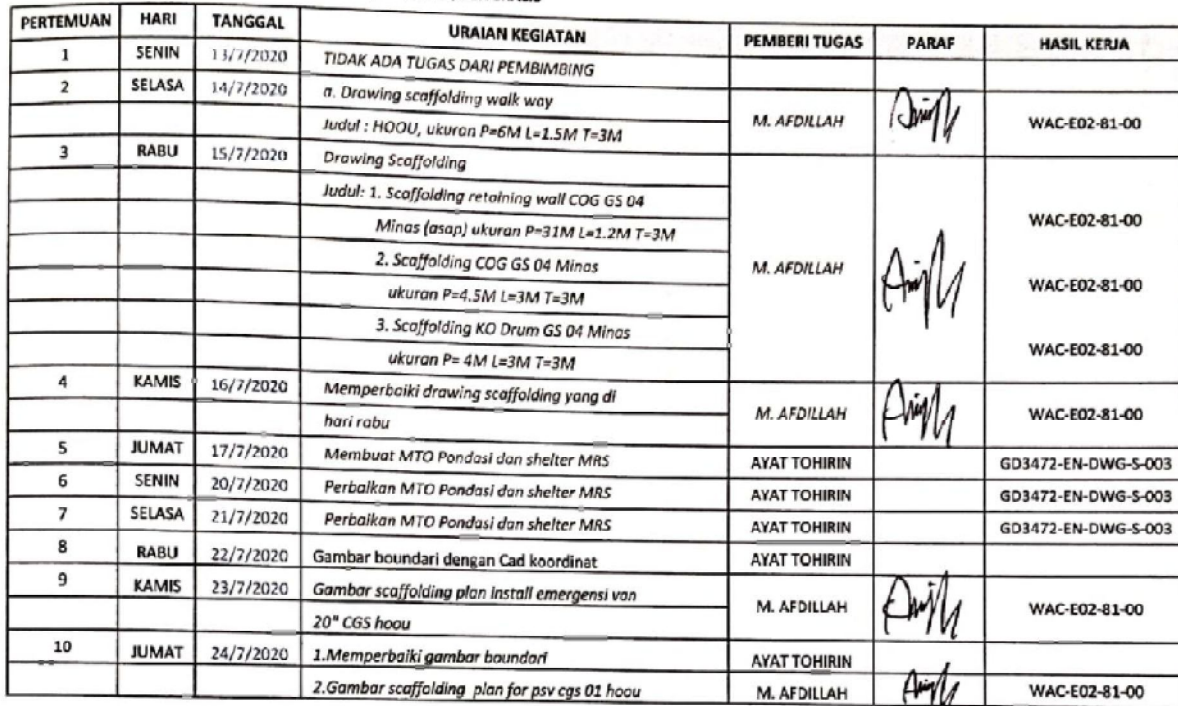 PERTEMUAN HARI TANGGAL URAIAN KEGIATAN PEMBERI TUGAS PARAF HASIL KERJA
1 SENIN 13/7/2020 TIDAK ADA TUGAS DARI PEMBIMBING
2 SELASA 14/7/2020 a. Drawing scaffolding walk way
Judul : HOOU, ukuran P=6M L=1.5M T=3M
M. AFDILLAH WAC-E02-81-00
3 RABU 15/7/2020 Drawing Scaffolding
Judul: 1. Scaffolding retaining wall COG GS 04
Minas (asap) ukuran P=31M L=1.2M T=3M WAC-E02-81-00
2. Scaffolding COG GS 04 Minas
M. AFDILLAH
ukuran P=4.5M L=3M T=3M WAC-E02-81-00
3. Scaffolding KO Drum GS 04 Minas
ukuran P= 4M L=3M T=3M WAC-E02-81-00
4 KAMIS 16/7/2020 Memperbaiki drawing scaffolding yang di
hari rabu
M. AFDILLAH WAC-E02-81-00
5 JUMAT 17/7/2020 Membuat MTO Pondasi dan shelter MRS AYAT TOHIRIN GD3472-EN-DWG-S-003
6 SENIN 20/7/2020 Perbaikan MTO Pondasi dan shelter MRS AYAT TOHIRIN GD3472-EN-DWG-S-003
7 SELASA 21/7/2020 Perbaikan MTO Pondasi dan shelter MRS AYAT TOHIRIN GD3472-EN-DWG-S-003
8 RABU 22/7/2020 Gambar boundari dengan Cad koordinat AYAT TOHIRIN
9 KAMIS 23/7/2020 Gambar scaffolding plan Install emergensi van
20" CGS hoou
M. AFDILLAH WAC-E02-81-00
10 JUMAT 24/7/2020 1.Memperbaiki gambar boundari AYAT TOHIRIN
2.Gambar scaffolding plan for psv cgs 01 hoou M. AFDILLAH WAC-E02-81-00